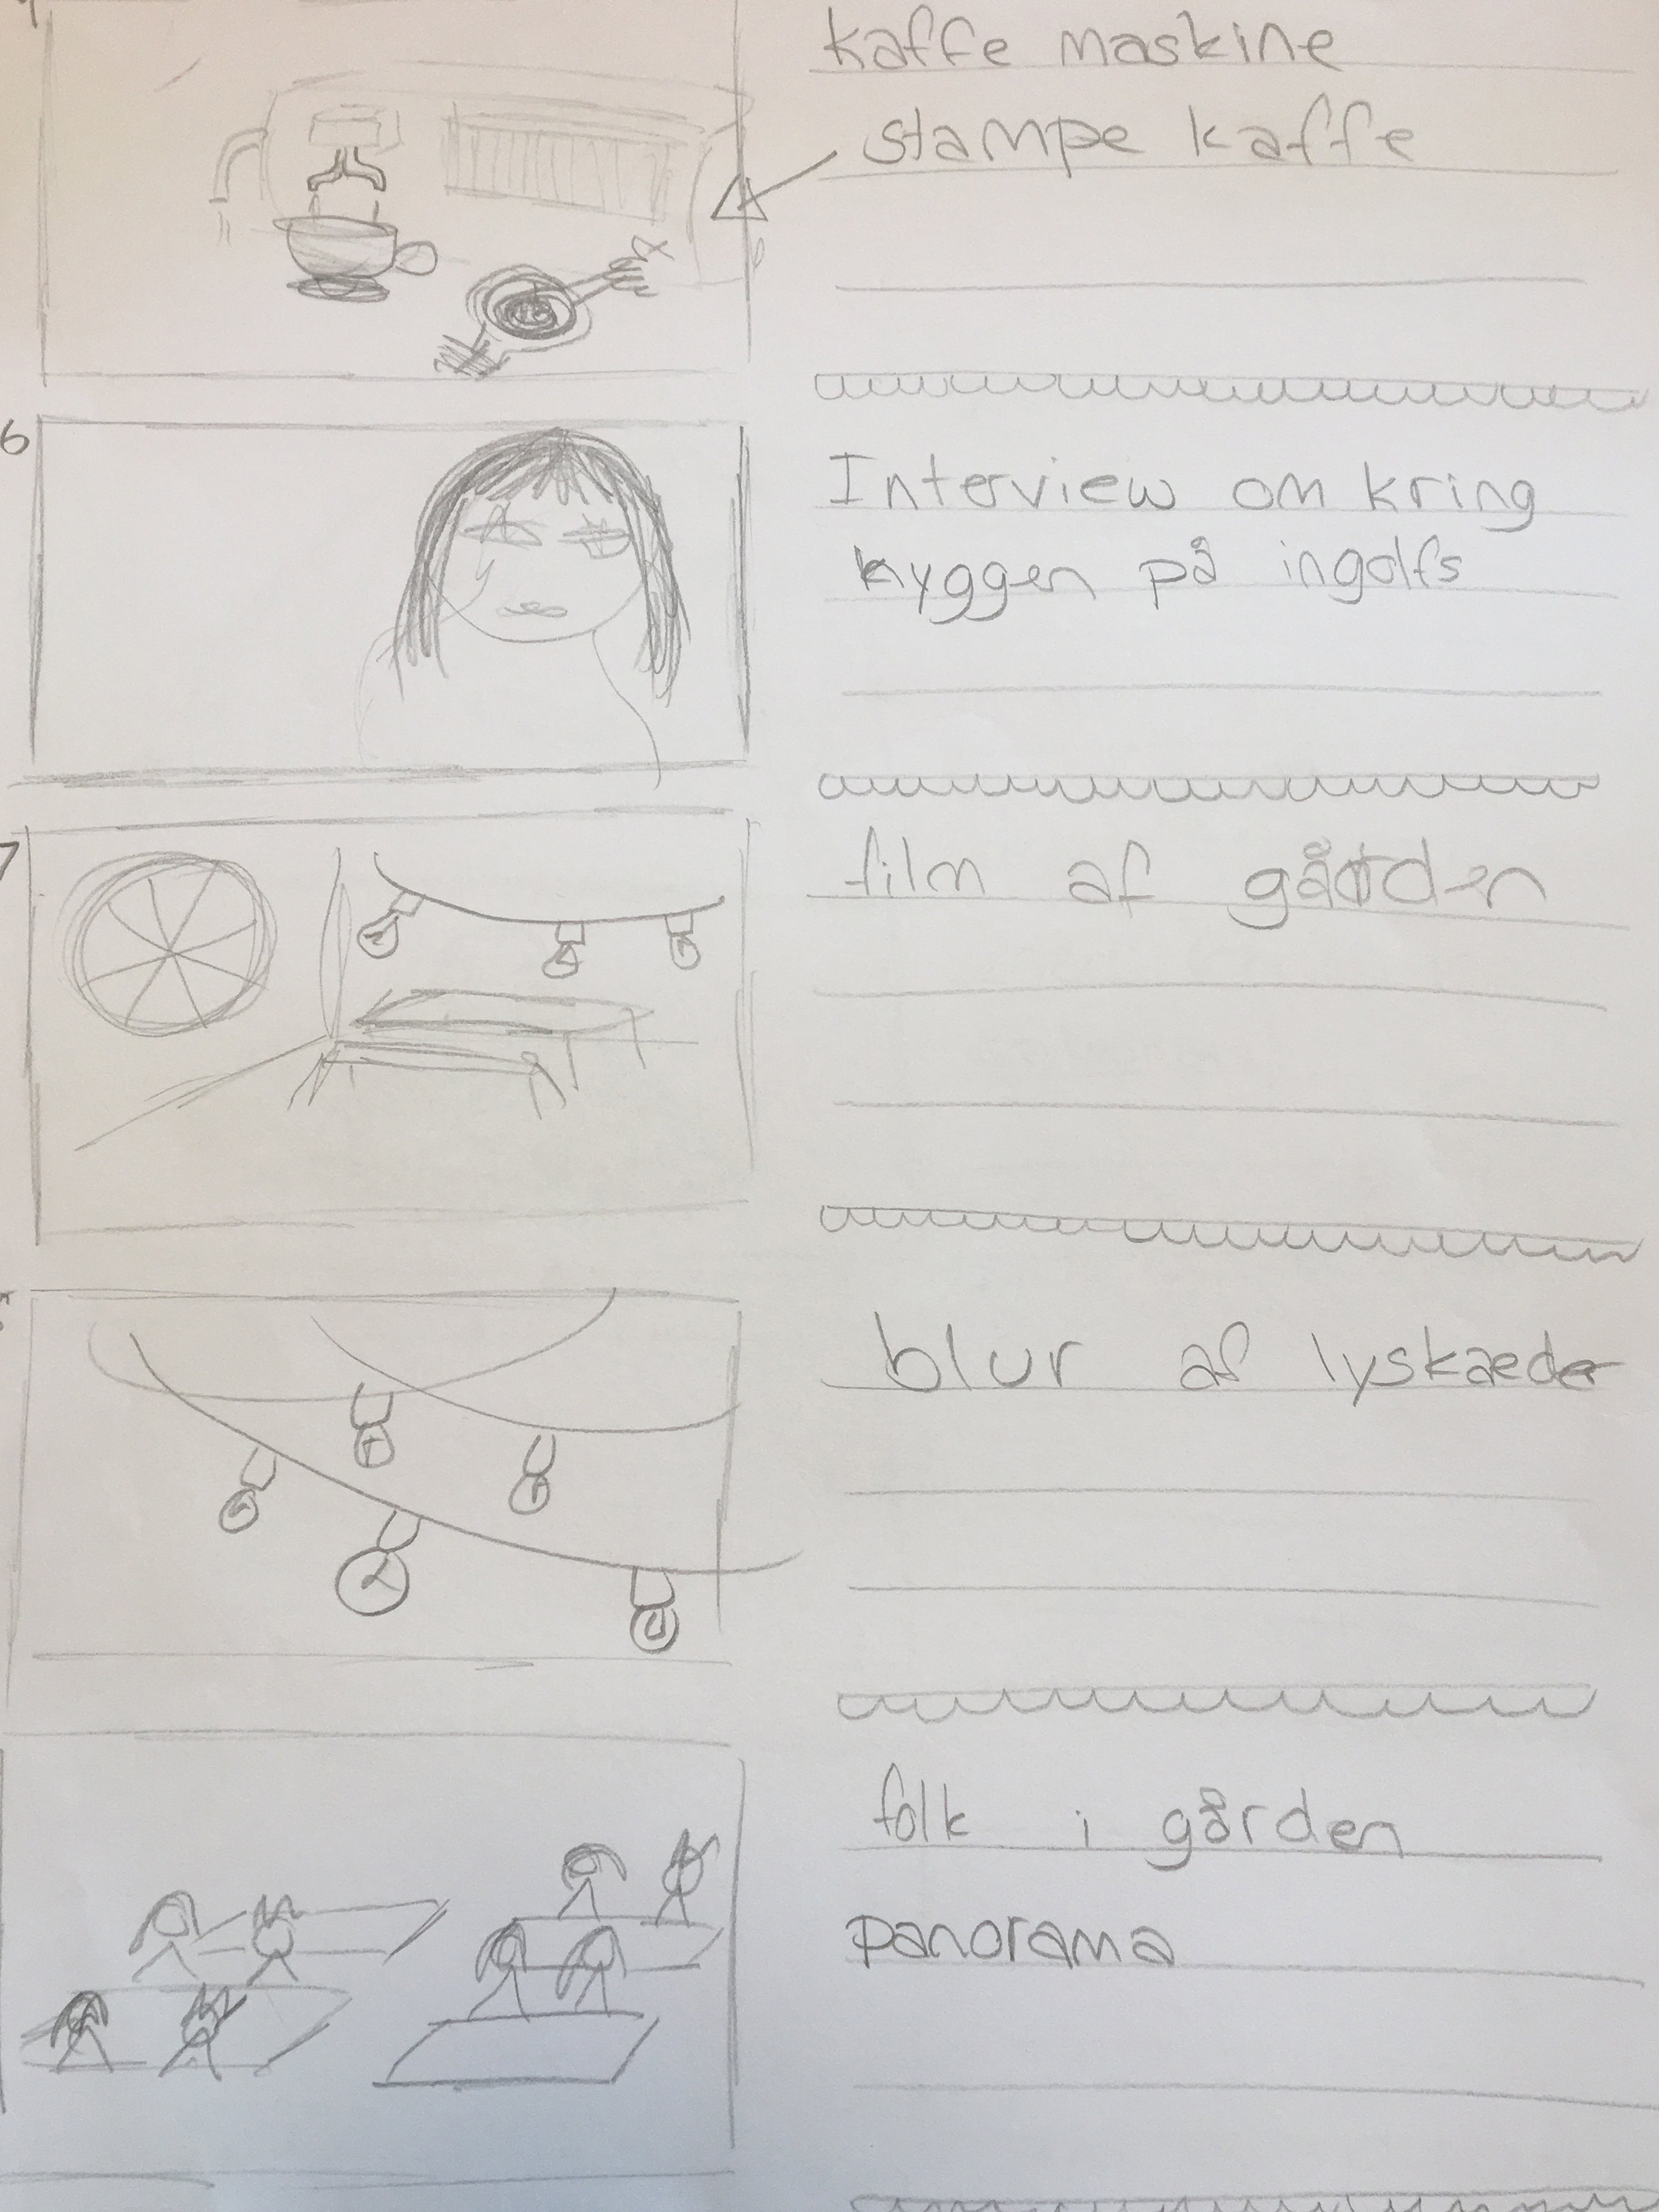 kaffe maskine
stampe kaffe
6
Interview om kring
hyggen på ingolfs
7
film af gården
blur af lyskæder
folk i gården
panorama